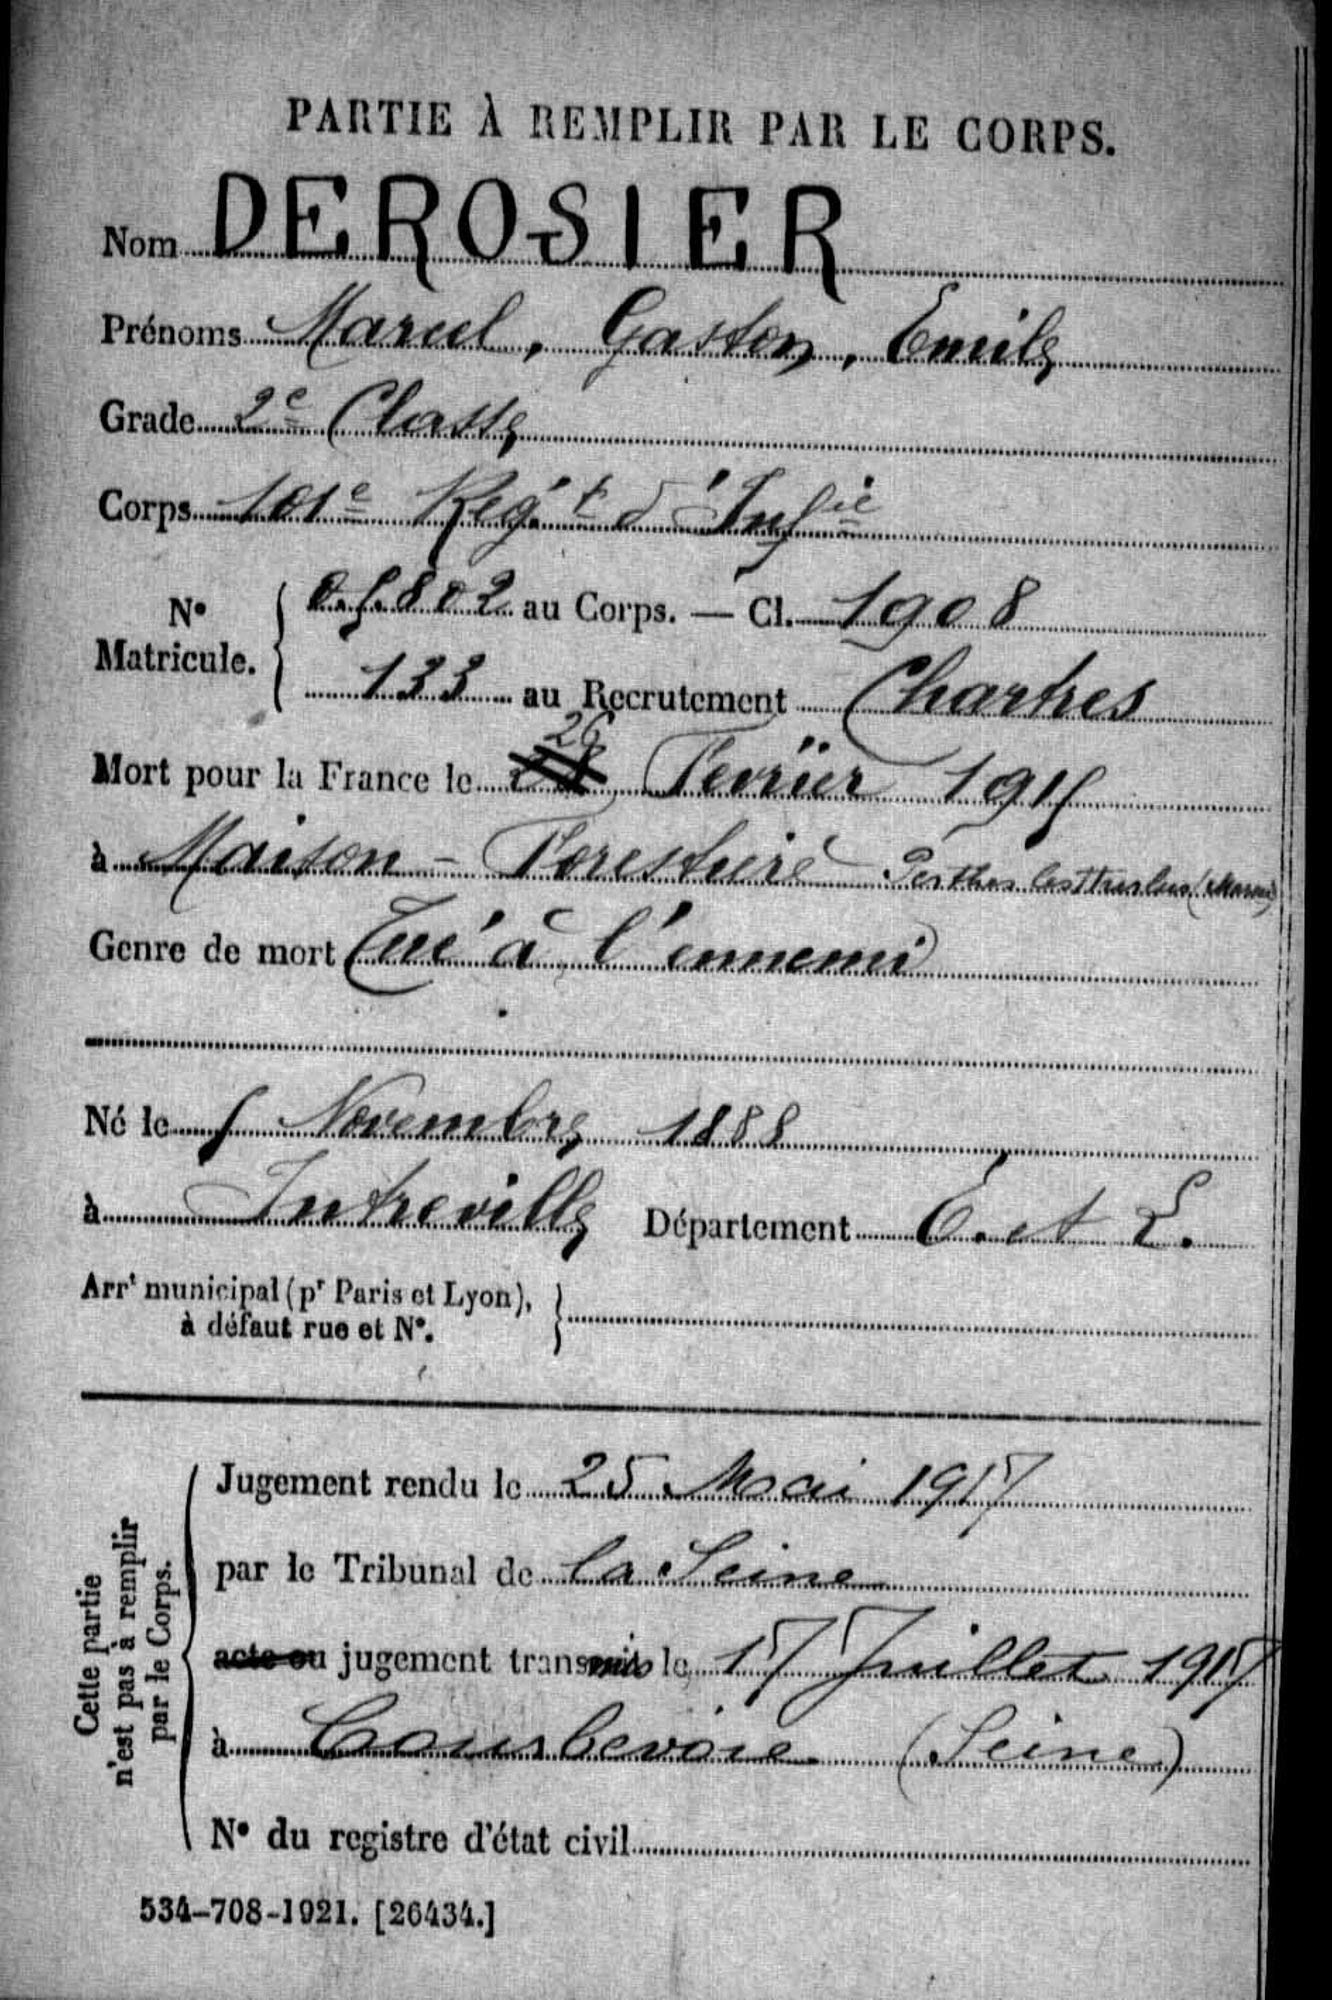 PARTIE À REMPLIR PAR LE CORPS.
Nom DEROSIER
Prénoms Marcel, Gaston, Emile
Grade 2e Classe
Corps 101e Reg.t d'Infie
N° Matricule. { 802 au Corps. — Cl. 1908
133 au Recrutement Chartres
26
Mort pour la France le Fevrier 1915
à Maison - Forestière Perthes les Hurlus (Marne)
Genre de mort Tué à l'ennemi
Né le 5 Novembre 1888
à Intreville Département E. et L.
Arrt municipal (pr Paris et Lyon), }
à défaut rue et N°.
Cette partie
n'est pas à remplir
par le Corps.
Jugement rendu le 25 Mai 1917
par le Tribunal de la Seine
acte ou jugement transmis le 17 Juillet 1917
à Courbevoie (Seine)
N° du registre d'état civil
534-708-1921. [26434.]